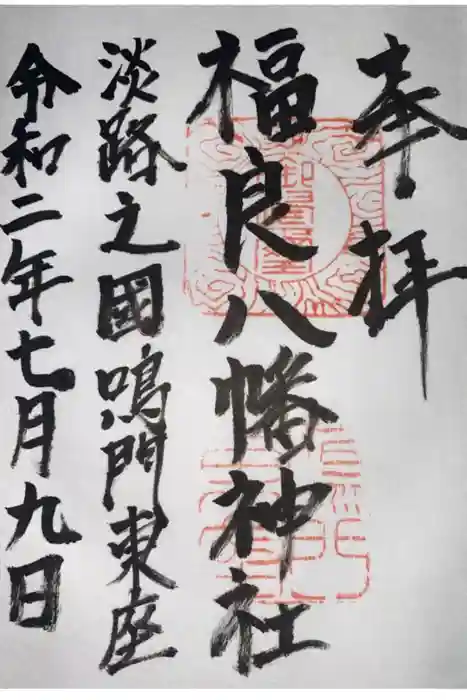 奉拝
福良八幡神社
淡路之國鳴門東座
令和二年七月九日